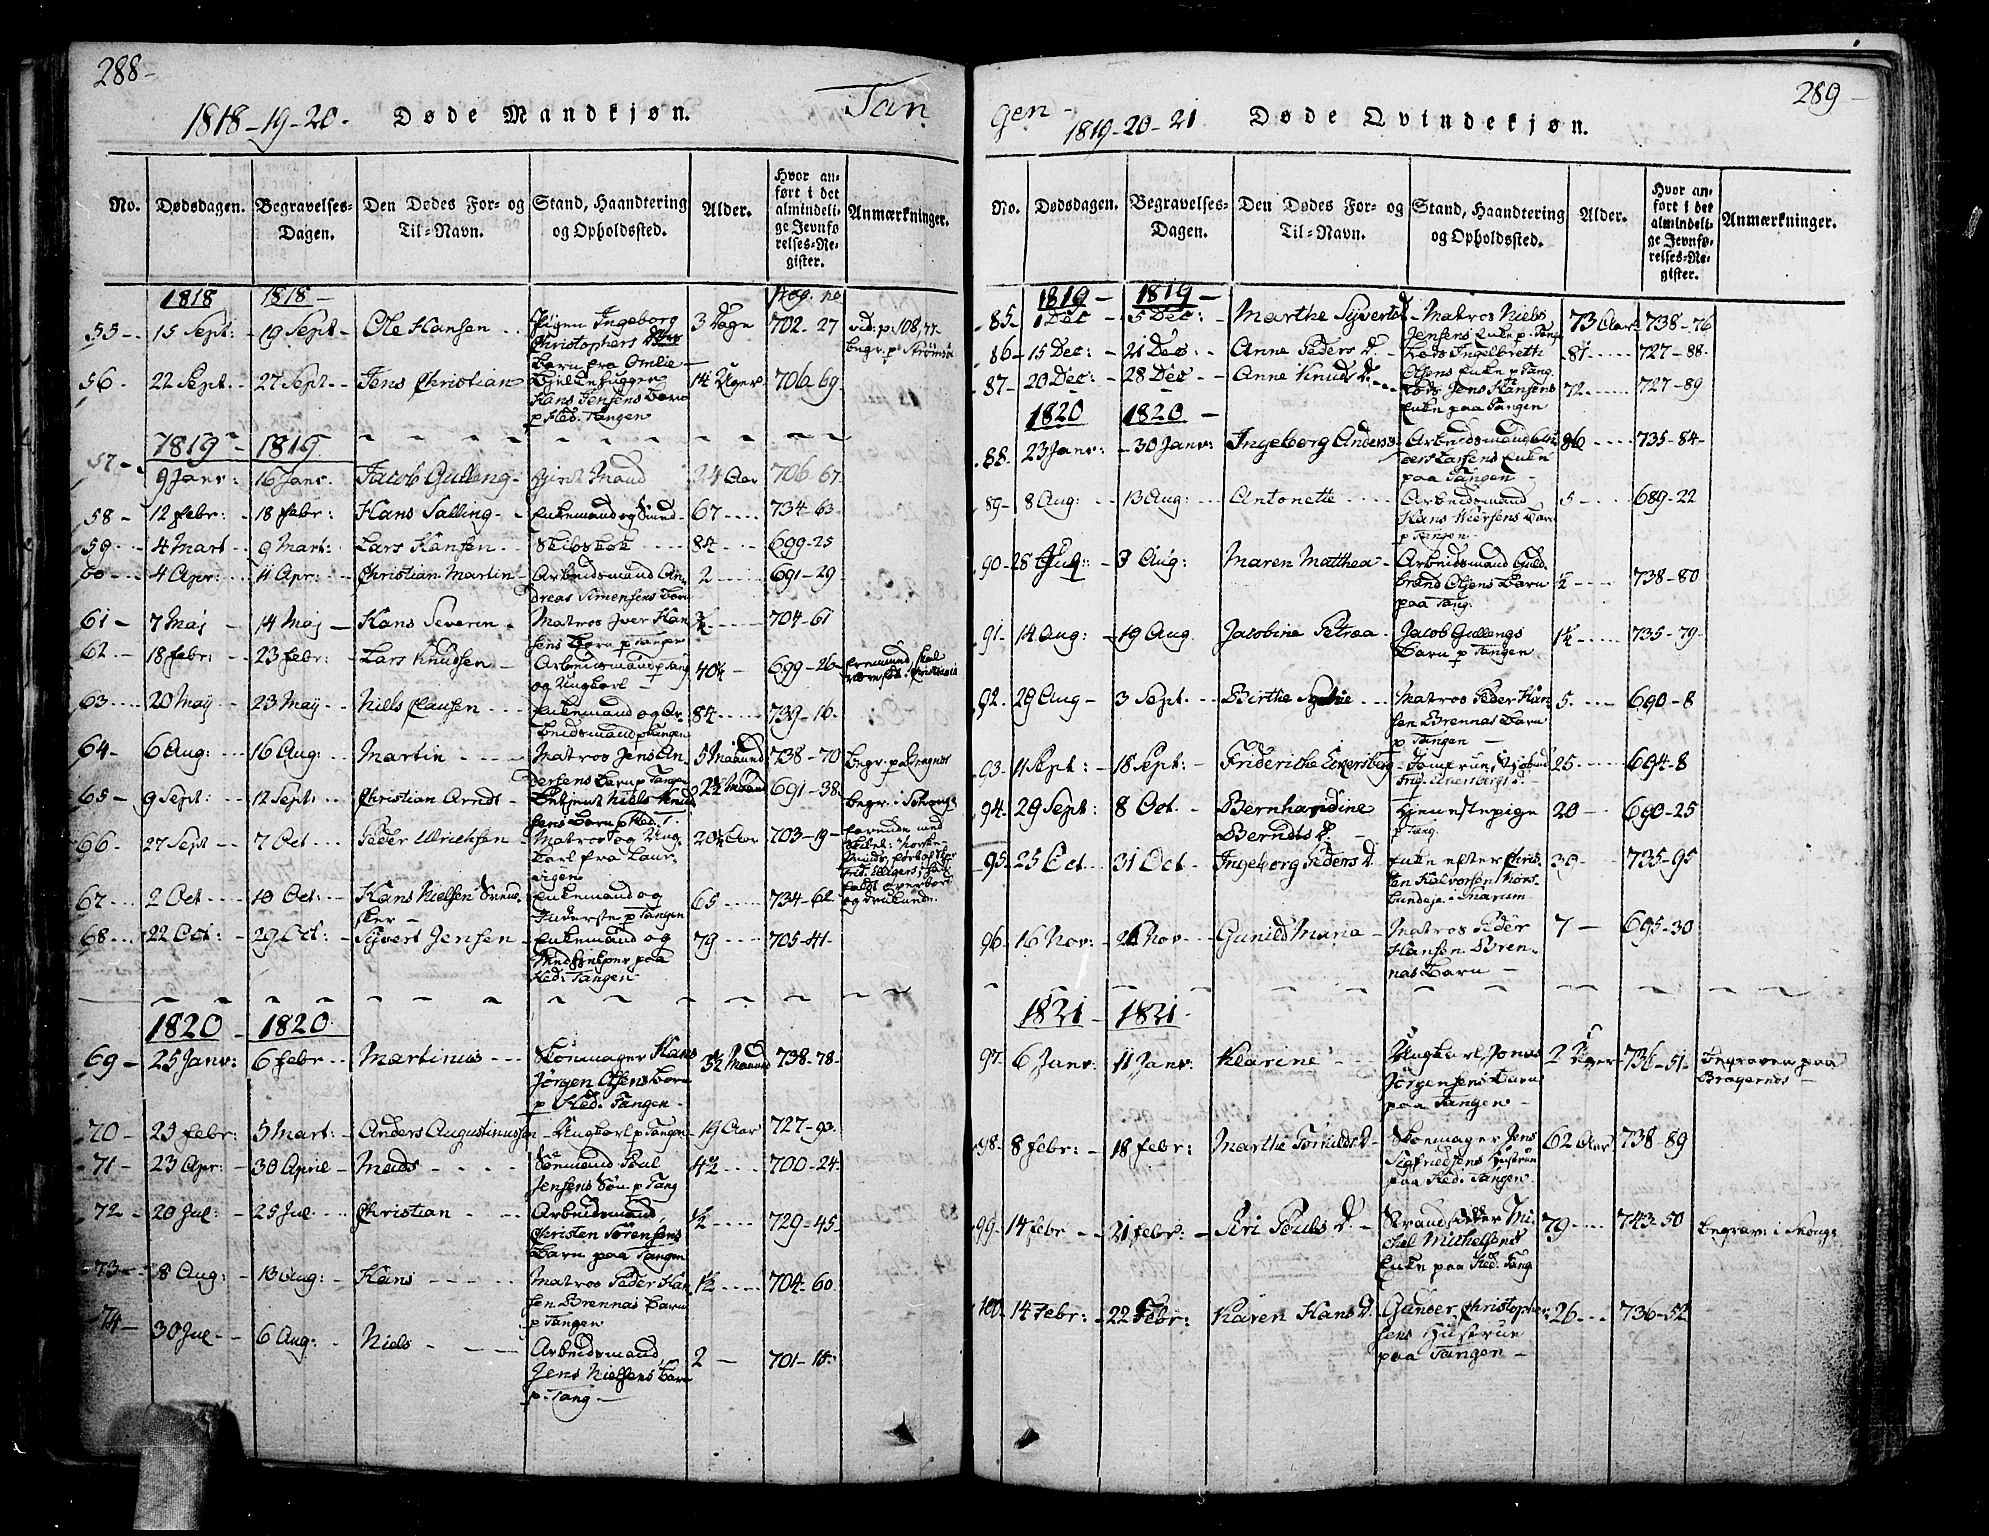 288-
Tan
1818-19-20. Døde Mandkjøn.
No. Dødsdagen. Begravelses-Dagen. Den Dødes For- og Til-Navn. Stand, Haandtering og Opholdssted. Alder. Hvor anført i det almindelige Jevnførelses-Register. Anmærkninger.
1818 1818-
55- 15 Sept: 19 Sept- Ole Hansen Pigen Ingeborg 3 Dage 702-27 vid: p: 108,
Christophers D
Barn fra Omlie
56 22 Sept: 27 Sept- Jens Christian 14 Uger 706-69.
Hans Jensens Barn
p Hed. Tangen
1819- 1819
57- 9 Janv: 16 Janv. Jacob Gulleng- Gift Mand 24 Aar 706-67-
58- 12 febr: 18 febr: Hans Salling- Enkemand og 67 734-63-
59 4 Mart 9 Mart: Lars Hansen 84 699-25
60 4 Apr: 11 Apr: Christian Martin Arbeidsmand An- 2 691-29
dreas Simensens Barn
61- 7 Maj 14 Maj- Hans Severin Matros Iver Han- 704-61
sens Barn p Tangen
62 18 febr: 23 febr: Lars Knudsen Arbeidsmand p Tang 40½ 699-26
og Ungkarl
63 20 May 23 May Niels Clausen Enkemand og Ar- 84 739-16.
beidsmand p Tangen
64- 6 Aug: 16 Aug: Martin Matros Jens An- 5 Maaned 738-70 begr. p Bragnes
dersens Barn p Tangen
65- 9 Sept: 12 Sept: Christian Arndt- Niels Knud 691-38. begr. i
sens Barn p Hed. T.
66 27 Sept 7 Oct Peder Ulrichsen Matros og Ung- 20½ Aar 703-19-
karl fra Laur-
vigen
67 2 Oct 10 Oct: Hans Nielsen Enkemand og 65 734-62
Inderste p Tangen og druknede.
68 22 Oct: 29 Oct: Sivert Jensen Enkemand og 79 705-41-
paa
Hed: Tangen-
1820- 1820
69- 25 Janv: 6 febr Martinus Skomager Hans 738-78-
Jørgen Olsens Barn
p Hed. Tangen
70- 25 febr: 5 Mart: Anders Augustinussen Ungkarl p Tangen 19 Aar 727-93.
71- 23 Apr: 30 April Mads Sömand Poul 4½ 700-24.
Jensens Sön p Tang
72- 20 Jul: 25 Jul Christian Arbeidsmand ½ 729-45.
Christen Sörensens
Barn paa Tangen
73- 8 Aug: 13 Aug: Hans Matros Peder Han- 1½ 704-60.
sen Brennas Barn
p Tangen
74 30 Jul 6 Aug: Niels Arbeidsmand 2- 701-18.
Jens Nielsens Barn
p. Tang-
289-
gen-
1819-20-21 Døde Qvindekjøn.
No. Dødsdagen. Begravelses-Dagen. Den Dødes For- og Til-Navn. Stand, Haandtering og Opholdssted. Alder. Hvor anført i det almindelige Jevnførelses-Register. Anmærkninger.
1819- 1819-
85- 1 Dec 5 Dec: Marthe Syverts D Matros Niels 73 Aar 738-76
Jensens Enke p Tang
86- 15 Dec: 21 Dec: Anne Peders D. Lods Ingelbreth 81 727-88-
Olsens Enke p Tang.
87- 20 Dec: 28 Dec Anne Knuds D. Lods Jens Hansens 72 727-89
Enke paa Tangen
1820 1820-
88- 23 Janv: 30 Janv: Ingeborg Anders Arbeidsmand An- 86 735-84-
ders Larsens Enke
paa Tangen
89- 8 Aug: 13 Aug: Antonette Arbeidsmand 5 689-22
Hans Barn
p Tangen
90- 28 Jul: 3 Aug: Maren Matthea- Arbeidsmand Guld- ½ 738-80
brand Olsens Barn
paa Tang:
91- 14 Aug: 19 Aug Jacobine Petræa Jacob Gullengs 1½ 735-79-
Barn p Tangen
92. 29 Aug- 3 Sept: Birthe Matros Peder Han- 5. 690-8
sen Brennas Barn
p Tangen
93- 11 Sept: 18 Sept: Frideriche Jomfrue, 25 694-8
94. 29 Sept: 8 Oct Bernhardine Tjenestepige 20- 690-25
Bernts D. p Tang.
95. 25 Oct 31 Oct Ingeborg Peders D. Enke efter Chris- 30- 735-95
ten Halvorsen
96- 16 Nov: 21 Nov Gunild Maria Matros Peder 7- 695-30
Hansen Bren-
nas Barn
1821- 1821-
97- 6 Janv: 11 Janv: Klarine Ungkarl Jonas 2 Uger 736-51- Begraven paa
Jörgensens Barn Bragernes-
paa Tangen
98- 8 febr: 18 febr: Marthe Skomager Jens 62 Aar 738-89
Sigfriedsens Hustrue
paa Hed. Tangen
99- 14 febr 21 febr: Siri Pouls D. Mi- 79 743-50 begrav: i Skoug:
chel Michelsens
Enke paa Hed. Tang
100- 14 Febr: 22 Febr: Karen Hans D. Gunder Christopher- 26 736-52
sens Hustrue
paa Tangen-